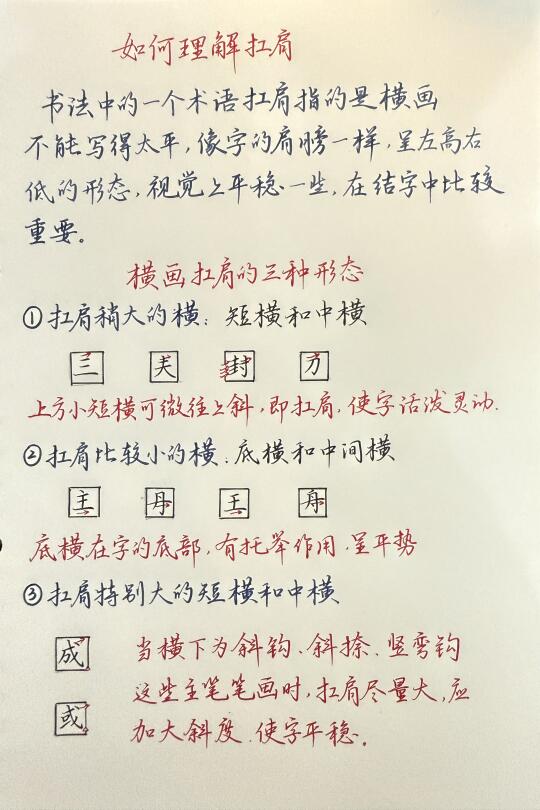 如何理解扛肩
书法中的一个术语扛肩指的是横画
不能写得太平，像字的肩膀一样，呈左高右
低的形态，视觉上平稳一些，在结字中比较
重要。
横画扛肩的三种形态
①扛肩稍大的横：短横和中横
三 夫 封 力
上方小短横可微往上斜，即扛肩，使字活泼灵动.
②扛肩比较小的横：底横和中间横
主 丹 王 舟
底横在字的底部，有托举作用.呈平势
③扛肩特别大的短横和中横
成
或
当横下为斜钩、斜捺、竖弯钩
这些主笔笔画时，扛肩尽量大，应
加大斜度.使字平稳。